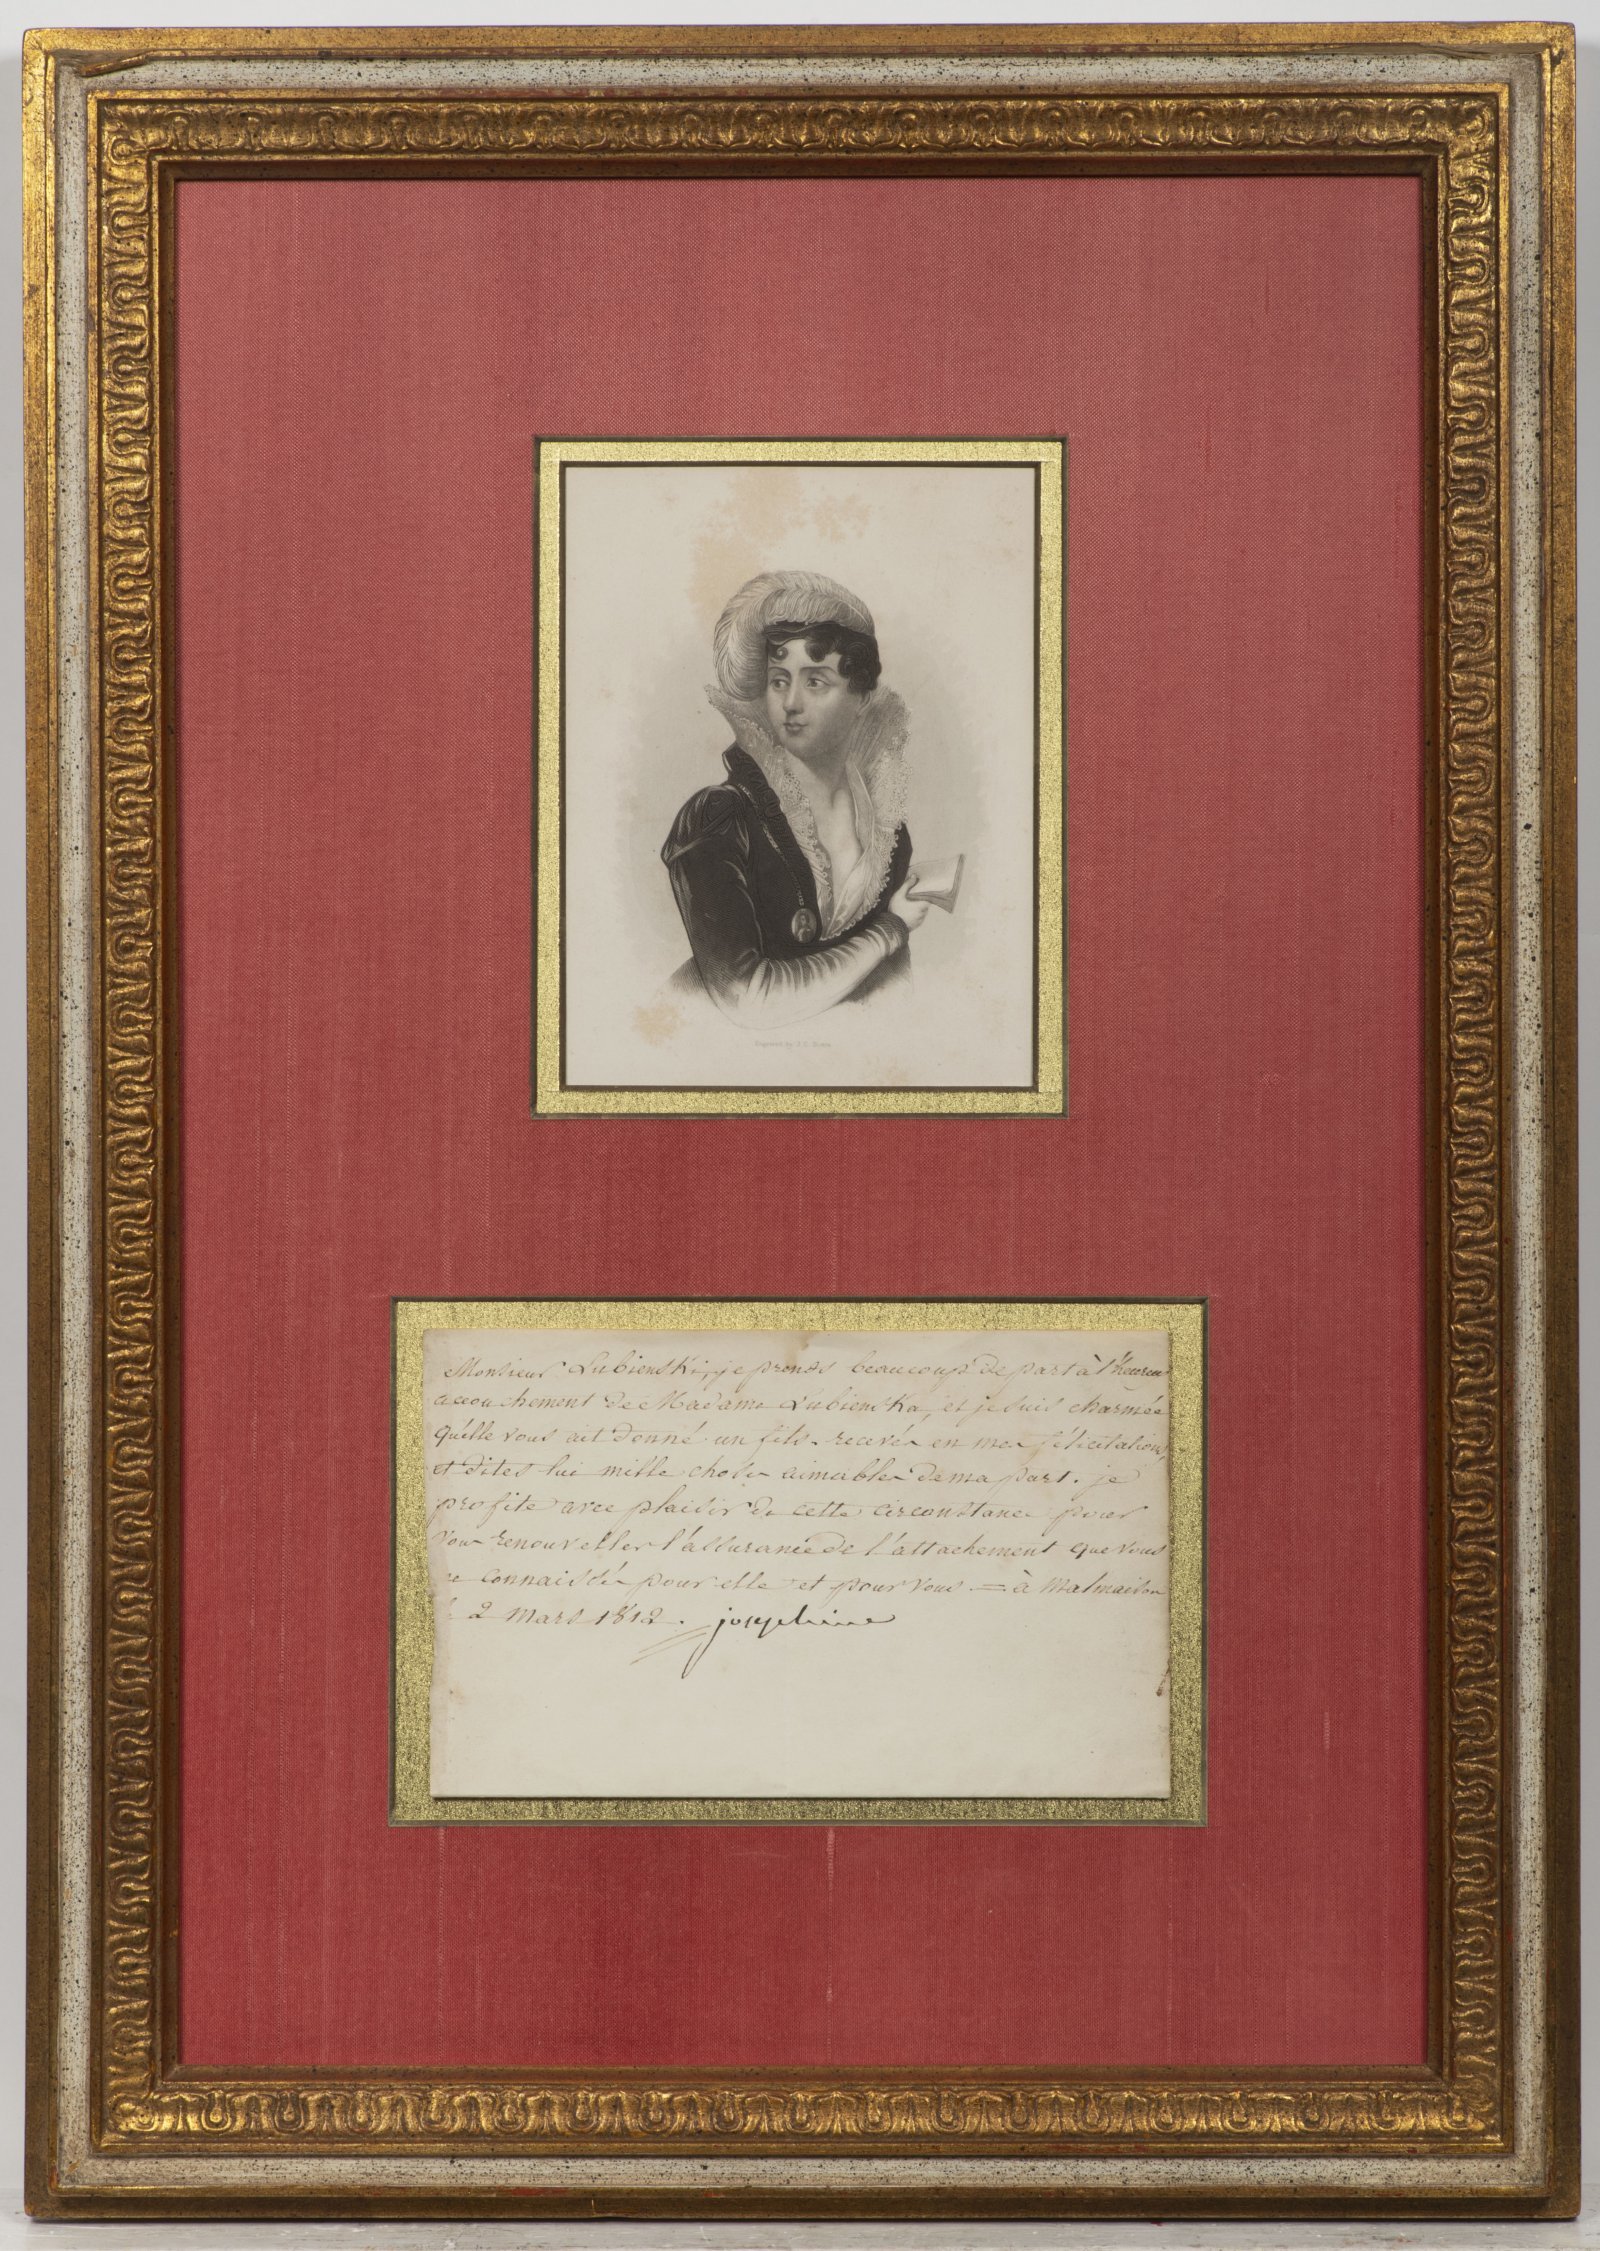 Engraved by J. C. Buttre
Monsieur Lubienski, je prends beaucoup de part à l'heureux
accouchement de Madame Lubienska, et je suis charmée
qu'elle vous ait donné un fils. recevés en mes félicitations,
et dites lui mille choses aimables de ma part. je
profite avec plaisir de cette circonstance pour
vous renouveller l'assurance de l'attachement que vous
me connaissés pour elle et pour vous = à Malmaison
le 2 mars 1812. josephine